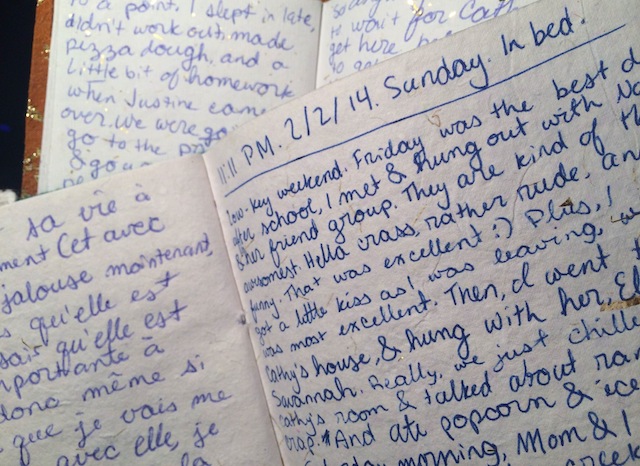 to a point. I slept in late,
didn't work out, made
pizza dough, and a
little bit of homework
when Justine came
over. we were
go to the
to wait for
get here
11:11 PM. 2/2/14. Sunday. In bed.
low-key weekend. Friday was the best
after school, I met & hung out with
& her friend group. They are kind of
awesomest. Hella crass, rather rude, and
funny. That was excellent :) Plus, I
got a little kiss as I was leaving,
was most excellent. Then, I went
Cathy's house, & hung with her,
Savannah. Really, we just
Cathy's room & talked about
crap. And ate popcorn &
morning, Mom & I
sa vie à
Cet avec
jalouse maintenant,
qu'elle est
sais qu'elle est
importante à
donc même si
que je vais me
avec elle, je